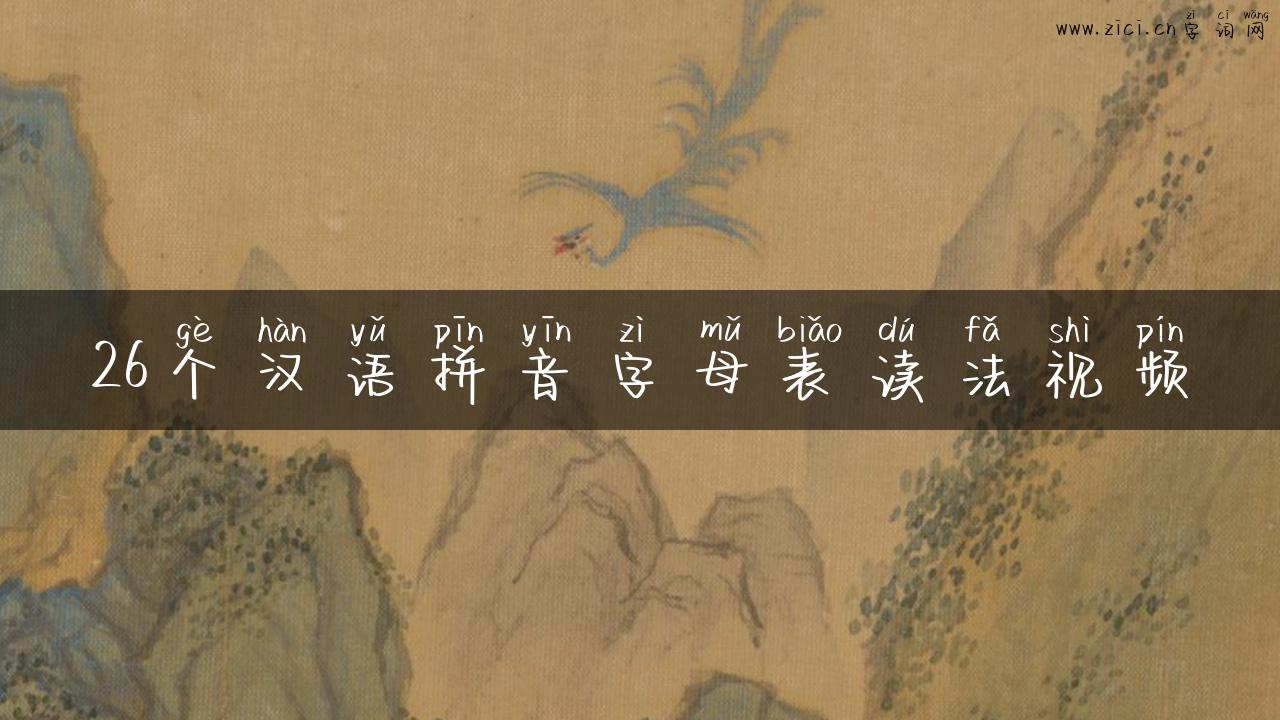 zì cí wǎng
www.zici.cn字词网
gè hàn yǔ pīn yīn zì mǔ biǎo dú fǎ shì pín
26个汉语拼音字母表读法视频